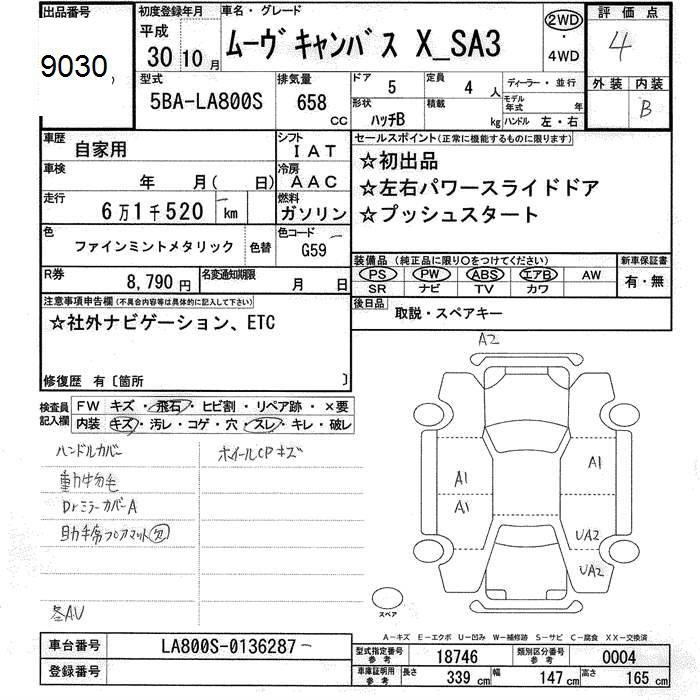 出品番号
9030
初度登録年月
平成
30 10 月
車名・グレード
ムーヴ キャンバス X_SA3
2WD
・
4WD
評価点
4
外装 内装
B
型式
5BA-LA800S
排気量
658 cc
ドア
5
定員
4 人
形状
ハッチB
積載
kg
ディーラー・並行
モデル年式 年
ハンドル 左・右
車歴
自家用
シフト
IAT
車検
年 月( 日)
冷房
AAC
走行
6万1千520 km
燃料
ガソリン
色
ファインミントメタリック
色替
色コード
G59
R券
8,790 円
名変通知期限
月 日
セールスポイント(正常に機能するものに限ります)
☆初出品
☆左右パワースライドドア
☆プッシュスタート
装備品 (純正品に限り○をつけてください)
PS PW ABS エアB AW
SR ナビ TV カワ
新車保証書
有・無
後日品
取説・スペアキー
注意事項申告欄(不具合内容等は具体的に記入して下さい)
☆社外ナビゲーション、ETC
修復歴 有〔箇所 〕
検査員記入欄
FW キズ・飛石・ヒビ割・リペア跡・×要
内装 キズ・汚レ・コゲ・穴・スレ・キレ・破レ
ハンドルカバー
ホイールCPキズ
動物毛
DrミラーカバーA
助手席フロアマット欠
各AU
A2
A1
A1
A1
UA2
UA2
スペア
A-キズ E-エクボ U-凹み W-補修跡 S-サビ C-腐食 XX-交換済
車台番号
LA800S-0136287
登録番号
型式指定番号 参考
18746
類別区分番号 参考
0004
車庫証明用 参考
長さ 339 cm
幅 147 cm
高さ 165 cm